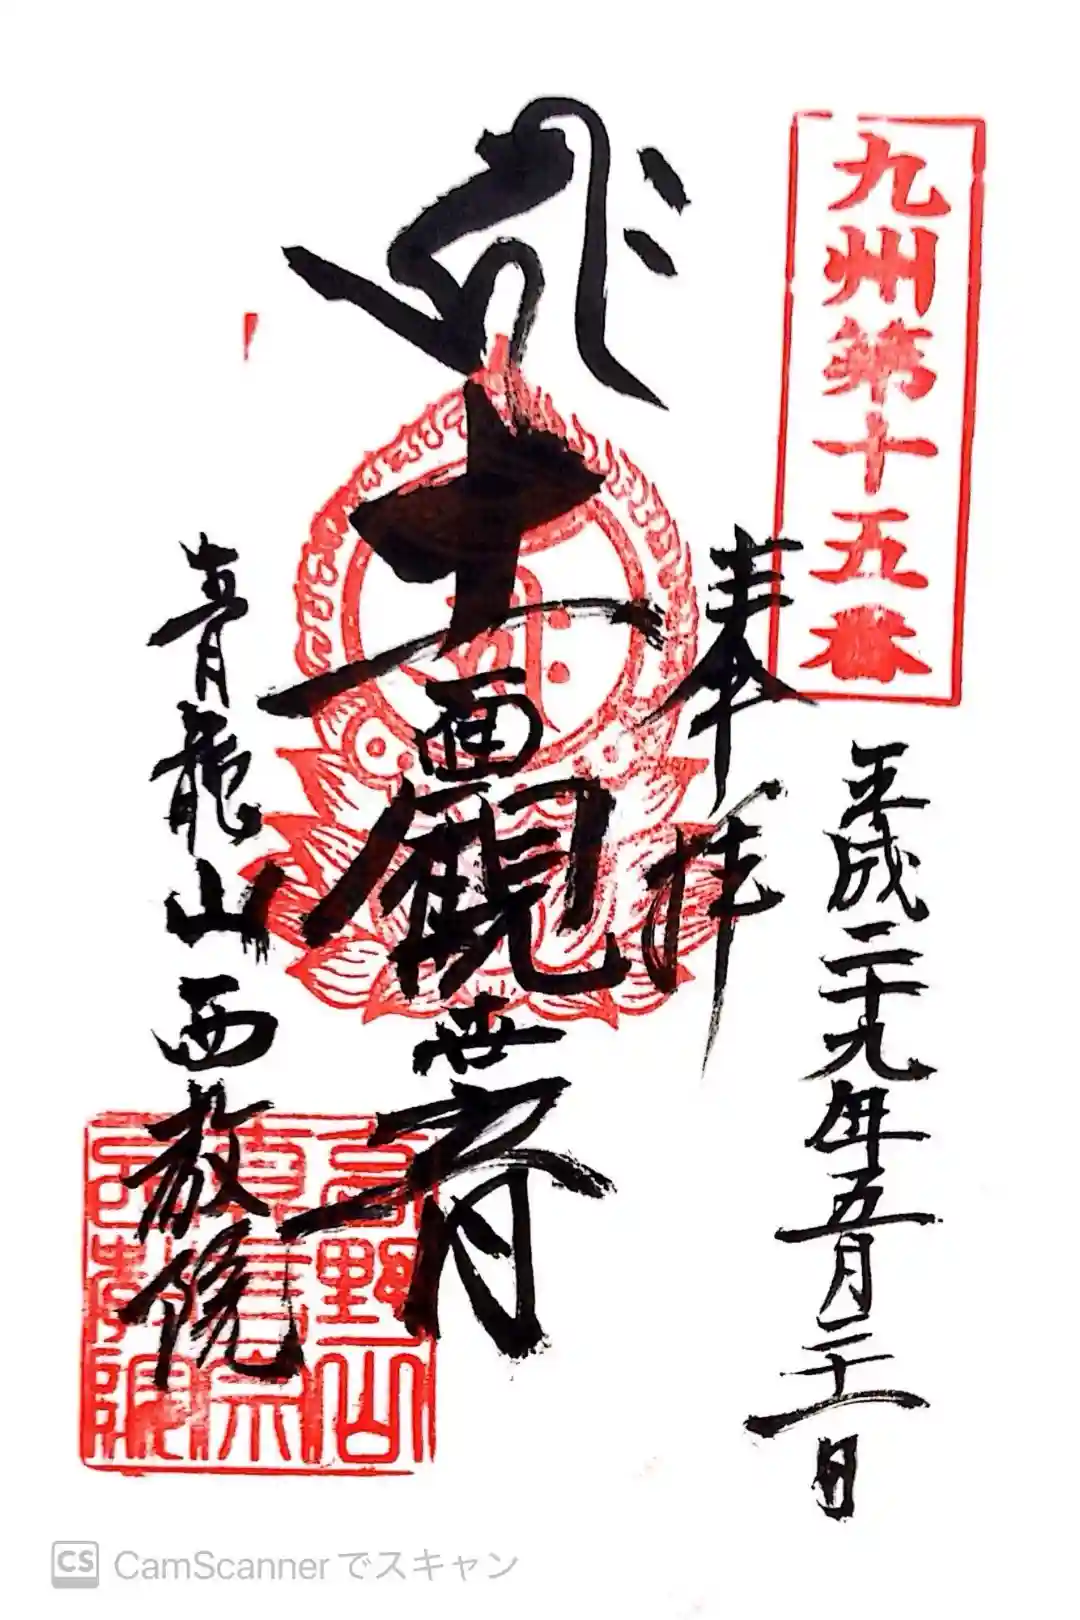 九州第十五番
奉拝
平成二十九年五月二十一日
十一面観世音
青龍山西教院
高野山
真言宗
西教院
CS CamScannerでスキャン